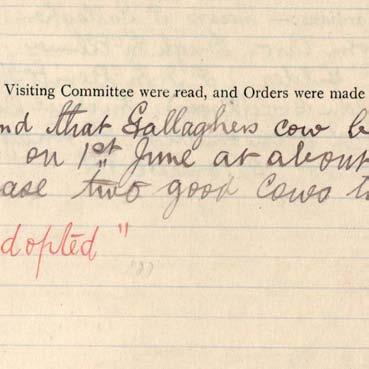 Visiting Committee were read, and Orders were made
nd that Gallaghers cow b
on 1st June at about
ase two good cows t
dopted"